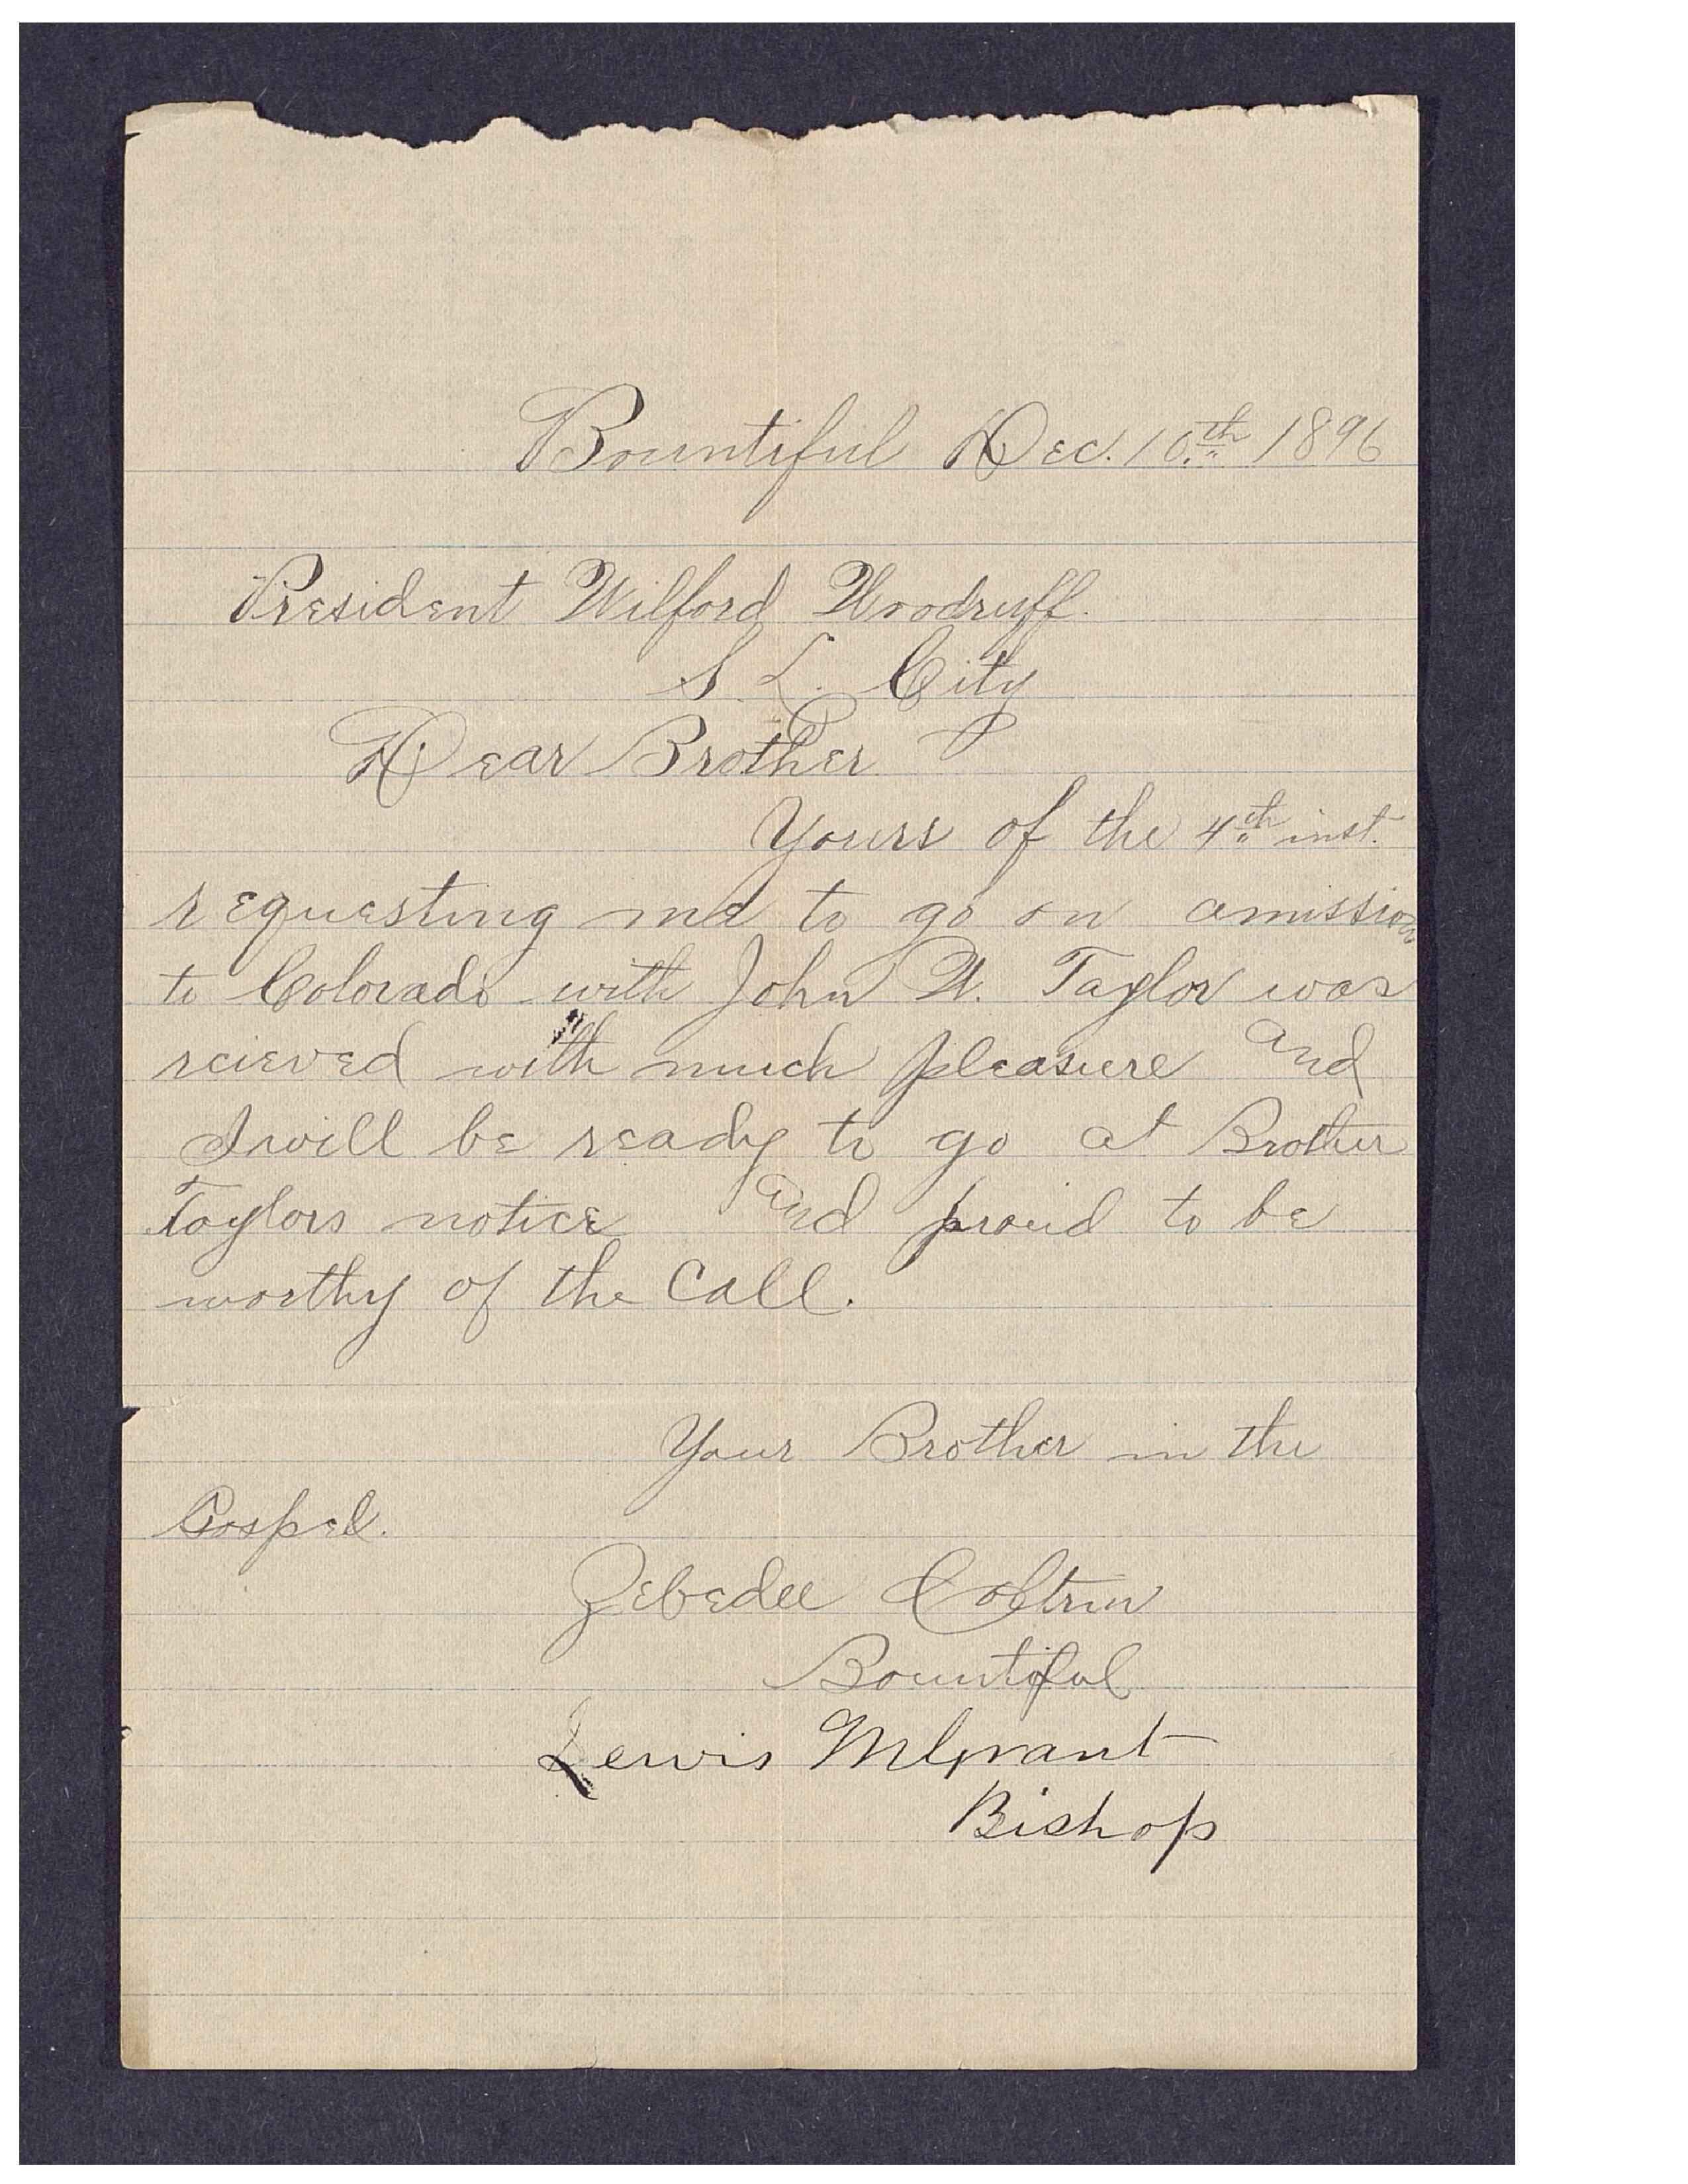 Bountiful Dec. 10th 1896
President Wilford Woodruff.
S. L. City
Dear Brother
Yours of the 4th inst.
requesting me to go on amission
to Colorado with John W. Taylor was
recieved with much pleasure and
I will be ready to go at Brother
Taylors notice and proud to be
worthy of the call.
Your Brother in the
Gospel.
Zebedee Coltrin
Bountiful
Lewis M Grant
Bishop